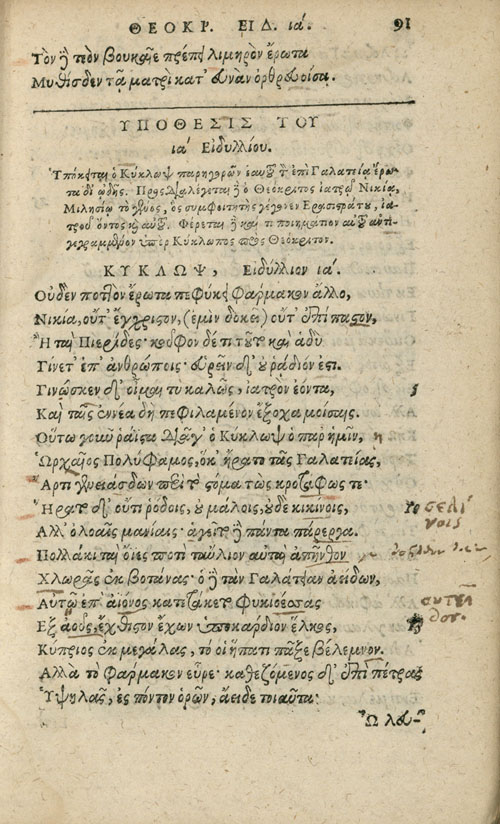 ΘΕΟΚΡ. ΕΙΔ. ια΄. 91
Τὸν ἢ τεὸν βουκαῖε πρέπει λιμηρὸν ἔρωτα
Μυθίσδεν τᾷ ματρὶ κατ' εὐνὰν ὀρθρευοίσᾳ.
ΥΠΟΘΕΣΙΣ ΤΟΥ
ια΄ Εἰδυλλίου.
Ὑπόκειται ὁ Κύκλωψ παρηγορῶν ἑαυτὸν ἐπὶ Γαλατείᾳ ἔρω-
τα δι' ᾠδῆς. Προσδιαλέγεται ἢ ὁ Θεόκριτος ἰατρῷ Νικίᾳ,
Μιλησίῳ τὸ γένος, ὃς συμφοιτητὴς γέγονεν Ἐρασιστράτου, ἰα-
τροῦ ὄντος καὶ αὐτοῦ. Φέρεται ἢ καί τι ποιημάτιον αὐτοῦ ἀντι-
γεγραμμένον ὑπὲρ Κύκλωπος πρὸς Θεόκριτον.
ΚΥΚΛΩΨ, Εἰδύλλιον ια΄.
Οὐδὲν ποττὸν ἔρωτα πεφύκει φάρμακον ἄλλο,
Νικία, οὔτ' ἔγχριστον, (ἐμὶν δοκεῖ) οὔτ' ἐπίπαστον,
Ἢ ταὶ Πιερίδες· κοῦφον δέ τι τοῦτο καὶ ἁδὺ
Γίνετ' ἐπ' ἀνθρώποις· εὑρεῖν δ' οὐ ῥᾴδιόν ἐστι.
Γινώσκεν δ' οἶμαί τυ καλῶς, ἰατρὸν ἐόντα, 5
Καὶ ταῖς ἐννέα δὴ πεφιλαμένον ἔξοχα μοίσαις.
Οὕτω γοῦν ῥάϊστα διᾶγ' ὁ Κύκλωψ ὁ παρ' ἡμῖν, η
Ὡρχαῖος Πολύφαμος, ὅκ' ἤρατο τᾶς Γαλατείας,
Ἄρτι γενειάσδων περὶ τὸ στόμα τὼς κροτάφως τε·
Ἤρατο δ' οὔτι ῥόδοις, οὐ μάλοις, οὐδὲ κικίνοις, 10 σελί
νοις
Ἀλλ' ὀλοαῖς μανίαις· ἁγεῖτο ἢ πάντα πάρεργα.
Πολλάκι ταὶ ὄϊες ποτὶ ταὔλιον αὐταὶ ἀπῆνθον
Χλωρᾶς ἐκ βοτάνας· ὁ ἢ τὰν Γαλάτειαν ἀείδων,
Αὐτῷ ἐπ' ἀϊόνος κατετάκετο φυκιοέσσας
Ἐξ ἀοῦς, ἔχθιστον ἔχων ὑποκάρδιον ἕλκος, 15
Κύπριος ἐκ μεγάλας, τό οἱ ἥπατι πᾶξε βέλεμνον.
Ἀλλὰ τὸ φάρμακον εὗρε· καθεζόμενος δ' ἐπὶ πέτρας
Ὑψηλᾶς, ἐς πόντον ὁρῶν, ἄειδε τοιαῦτα·
Ὦ λευ-